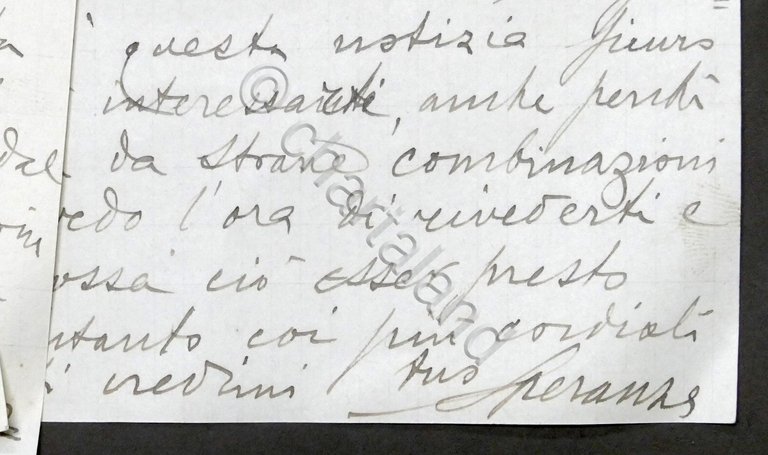 questa notizia
interessanti, anche perchè
da strane combinazioni
l'ora di rivederti e
ciò esser presto
coi più cordiali
credimi tuo Speranza
© chartaland